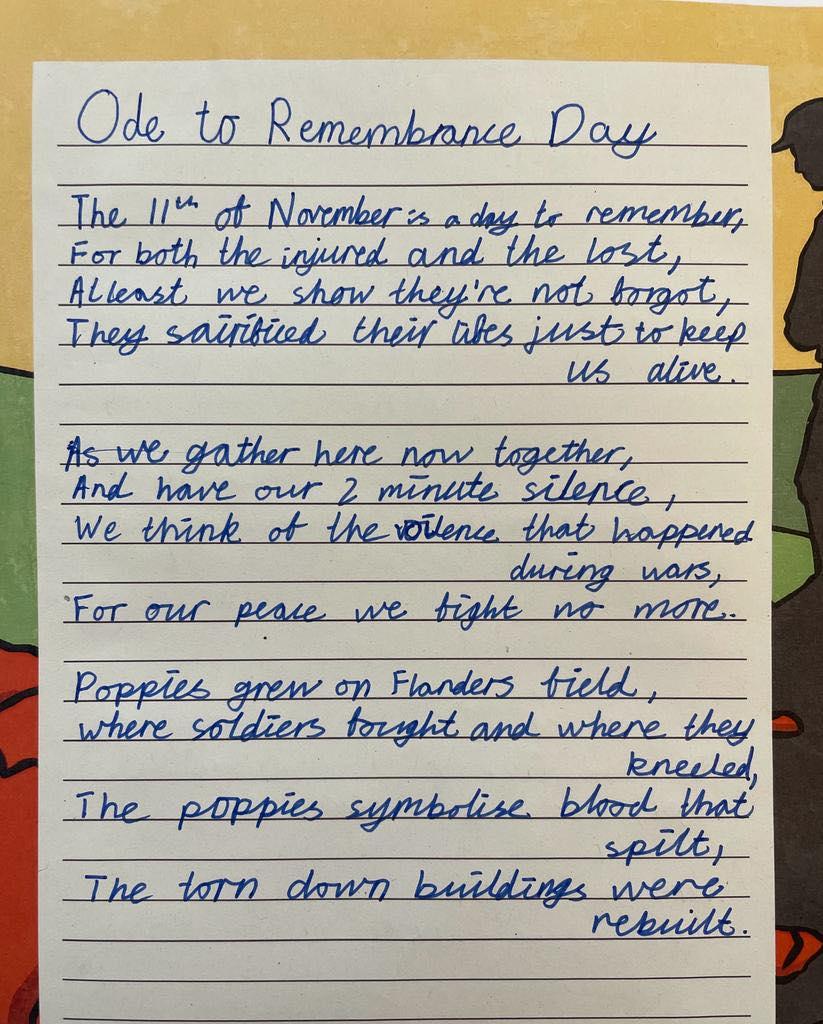 Ode to Remembrance Day
The 11th of November is a day to remember,
For both the injured and the lost,
Atleast we show they're not forgot,
They sairificed their lifes just to keep
us alive.
As we gather here now together,
And have our 2 minute silence,
We think of the voilence that happened
during wars,
For our peace we fight no more.
Poppies grew on Flanders field,
where soldiers fought and where they
kneeled,
The poppies symbolise blood that
spilt,
The torn down buildings were
rebuilt.